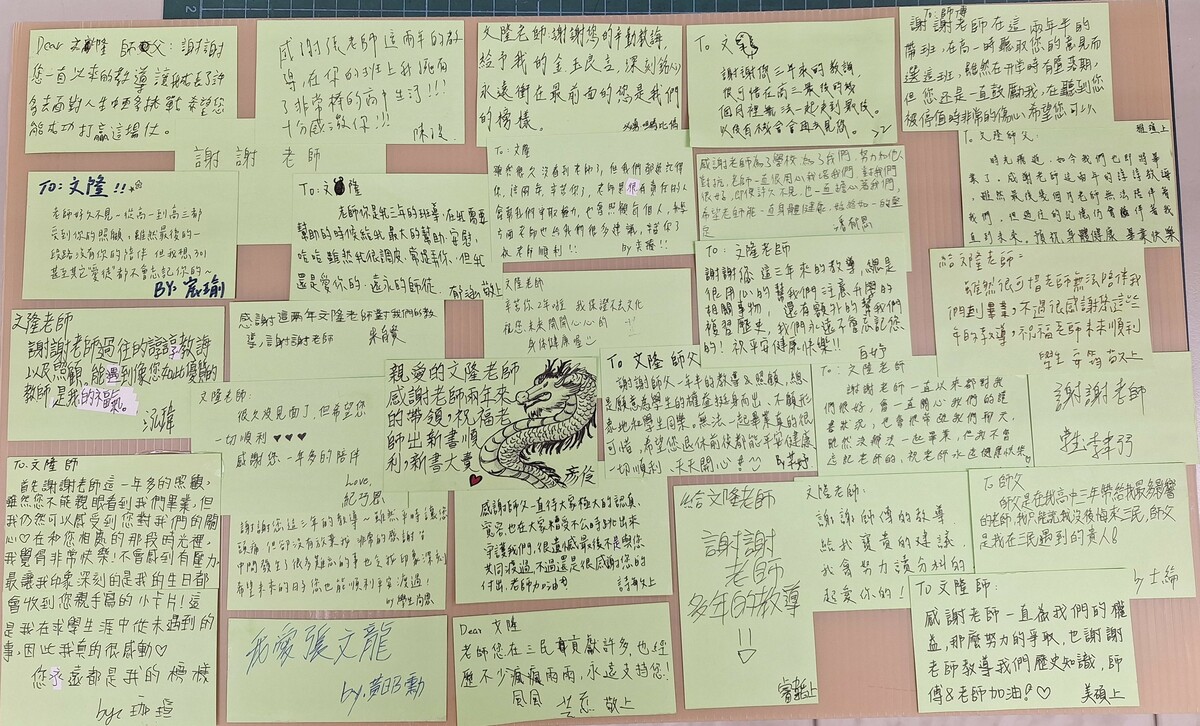 Dear 文隆 師父：謝謝
您一直以來的教導讓我去了許
多去面對人生的種種挑戰 希望您
能成功打贏這場仗。
感謝張老師這兩年的教
導，在你的班上我擁有
了非常棒的高中生活!!!
十分感激你!!!
陳
文隆老師：謝謝您的辛勤教誨
給予我的金玉良言，深刻銘心
永遠衝在最前面的您是我們
的榜樣。
To 文
謝謝你三年來的教誨
很可惜在高三最後的幾
個月裡無法一起走到最後。
以後有機會會再去見您。
To：師傅
謝謝老師在這兩年半的
帶班，在高一時聽取您的意見而
選這班，雖然在升學時有墜落期，
但您還是一直鼓勵我，在聽到您
被停值時非常的傷心 希望您可以
謝謝老師
To：文隆!!
老師好久不見~從高一到高三都
受到你的照顧，雖然最後的一
段路沒有你的陪伴 但我想，311
甚至其它愛徒都不會忘記你的~
BY.宸瑜
To：文隆
老師你是我三年的班導，在我需要
幫助的時候給我最大的幫助、安慰，
哈哈 雖然我很調皮、常惹事你，但我
還是愛你的，遠永的師徒。
郁涵敬上
To：文隆
雖然很久沒看到老師了，但我們都無忘得
你
感謝老師為了學校，為了我們，努力和他人
對抗，老師一直很用心栽培我們，對我們
很好，即使許久不見，也一直擔心著我們，
希望老師能一直身體健康，
To 文隆師父：
時光飛逝，如今我們也即將畢
業了。感謝老師這兩年的諄諄教誨
雖然最後幾個月老師無法陪伴著
我們，但過往的記憶仍會陪伴著我
直到未來。預祝身體健康 畢業快樂
文隆老師
謝謝老師過住的諄諄教誨
以及照顧，能遇到像您如此優勝的
教師是我的福氣。
泓瑋
感謝這兩年文隆老師對我們的教
導，謝謝老師
文隆老師
辛苦你2年啦 我保證天天文化
祝您未來開開心心的
身体健康 愛心
To：文隆老師
謝謝您這三年來的教導，總是
很用心的幫我們注意升學的
相關事物，還有額外的幫我們
複習歷史，我們永遠不會忘記您
的！祝平安健康快樂!!
百妤
給文隆老師：
雖然很可惜老師無法陪伴我
們到畢業，不過很感謝您這些
年的教導，祝福老師未來順利
學生 安筠 敬上
文隆老師：
很久沒見面了，但希望您
一切順利♥♥♥
感謝您一年多的陪伴
Love,
紀巧恩
親愛的文隆老師
感謝老師兩年來
的帶領，祝福老
師出新書順
利，新書大賣
彥伶
To 文隆 師父
謝謝師父一年半的教導&照顧，總
是願意為學生的權益挺身而出，不顧形
象地和學生同樂。無法一起畢業真的很
可惜，希望您退休前後都能平安健康
一切順利，天天開心！
To：文隆老師
謝謝老師一直以來都對我
們很好，會一直關心我們的健
康狀況，也會很幽默我們聊天，
雖然沒辦法一起畢業，但我不會
忘記老師的，祝老師永遠健康快樂♡
謝謝老師
To 文隆 師
首先謝謝老師這一年多的照顧，
雖然您不能親眼看到我們畢業，但
我仍然可以感受到您對我們的關
心♡在和您相處的那段時光裡，
我覺得非常快樂！不會感到有壓力，
最讓我印象深刻的是我的生日都
會收到您親手寫的小卡片！這
是我在求學生涯中從未遇到的
事，因此我真的很感動♡
您永遠都是我的榜樣
by：珈瑄
謝謝您這三年的教導~雖然平時讓您
頭痛，但卻沒有放棄我 非常的感謝!!
中間發生了很多難忘的事也令我印象深刻
希望未來的日子您也能順利平安渡過！
感謝師父一直待大家極大的認真、
寬容，也在大家遭受不公時跳出來
守護我們，很遺憾最後不是與您
共同渡過，不過還是很感謝您的
付出，老師加油
給文隆老師
謝謝
老師
多年的教導
!!
♡
文隆老師：
謝謝師傅的教導
給我寶貴的建議，
我會努力讀分科的
超愛你的！
To 師父
師父是在我高中三年帶給我最多影響
的老師，我只能說我沒後悔來三民，師父
是我在三民遇到的貴人！
by 士綸
我愛張文龍
by.黃昭勳
Dear 文隆
老師您在三民貢獻許多，也經
歷不少瘋瘋雨雨，永遠支持您！
風風
敬上
To：文隆 師：
感謝老師一直做我們的權
益，那麼努力的爭取，也謝謝
老師教導我們歷史知識，師
傅&老師加油！♡
美碩上